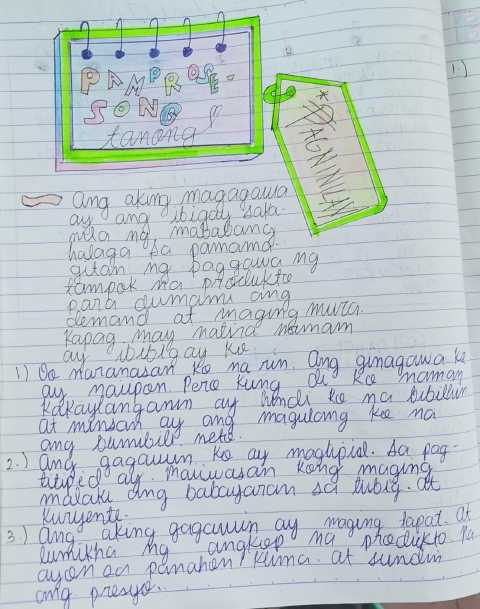 PAMPROSE-
SONG
tanong
*PAGNINILAY
1.)
Ang aking magagawa
ay ang ibigay sa
ng mababang
halaga sa pamama-
gitan ng paggawa ng
tampok na produkto
para dumami ang
demand at maging mura.
Kapag may natira naman
ay ibibigay ko
1) Oo naranasan ko na rin. Ang ginagawa ko
ay Pero kung di ko naman
kakaylanganin ay hindi ko na bibilhin
at minsan ay ang magulang ko na
ang bumibili neto.
2.) Ang gagawin ko ay magtipid. Sa pag-
titipid ay maiiwasan kong maging
malaki ang babayaran sa tubig. at
kuryente.
3.) Ang aking gagawin ay maging tapat. at
lumikha ng angkop na produkto na
ayon sa panahon, klima. at sundin
ang presyo.